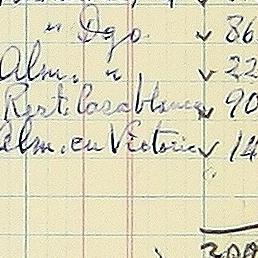 " Dgo. ✓ 36
Alm. " ✓ 22
Rest. Casablanca ✓ 90
Alm. en Victoria ✓ 14
300